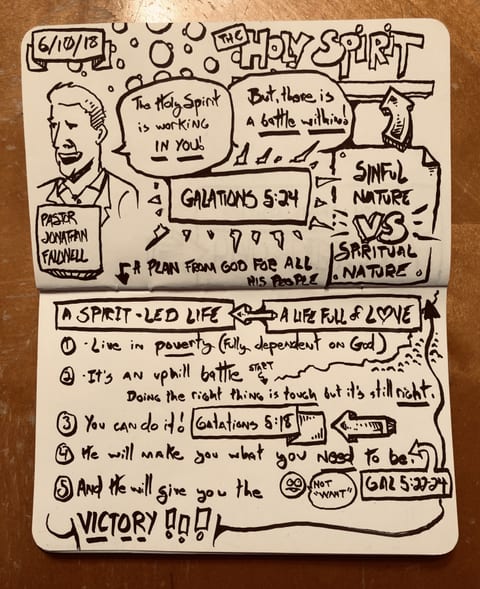 6/10/18
THE HOLY SPIRIT
The Holy Spirit
is working
IN YOU!
But, there is
a battle within!
GALATIONS 5:24
SINFUL
NATURE
VS
SPIRITUAL
NATURE
PASTOR
JONATHAN
FALWELL
A PLAN FROM GOD FOR ALL
HIS PEOPLE
A SPIRIT-LED LIFE
A LIFE FULL of LOVE
1 - Live in poverty (fully dependent on God)
2 - It's an uphill battle START
Doing the right thing is tough but it's still right.
3 You can do it! Galations 5:18
4 He will make you what you need to be.
5 And He will give you the
NOT
"WANT"
GAL 5:22-24
VICTORY!!!